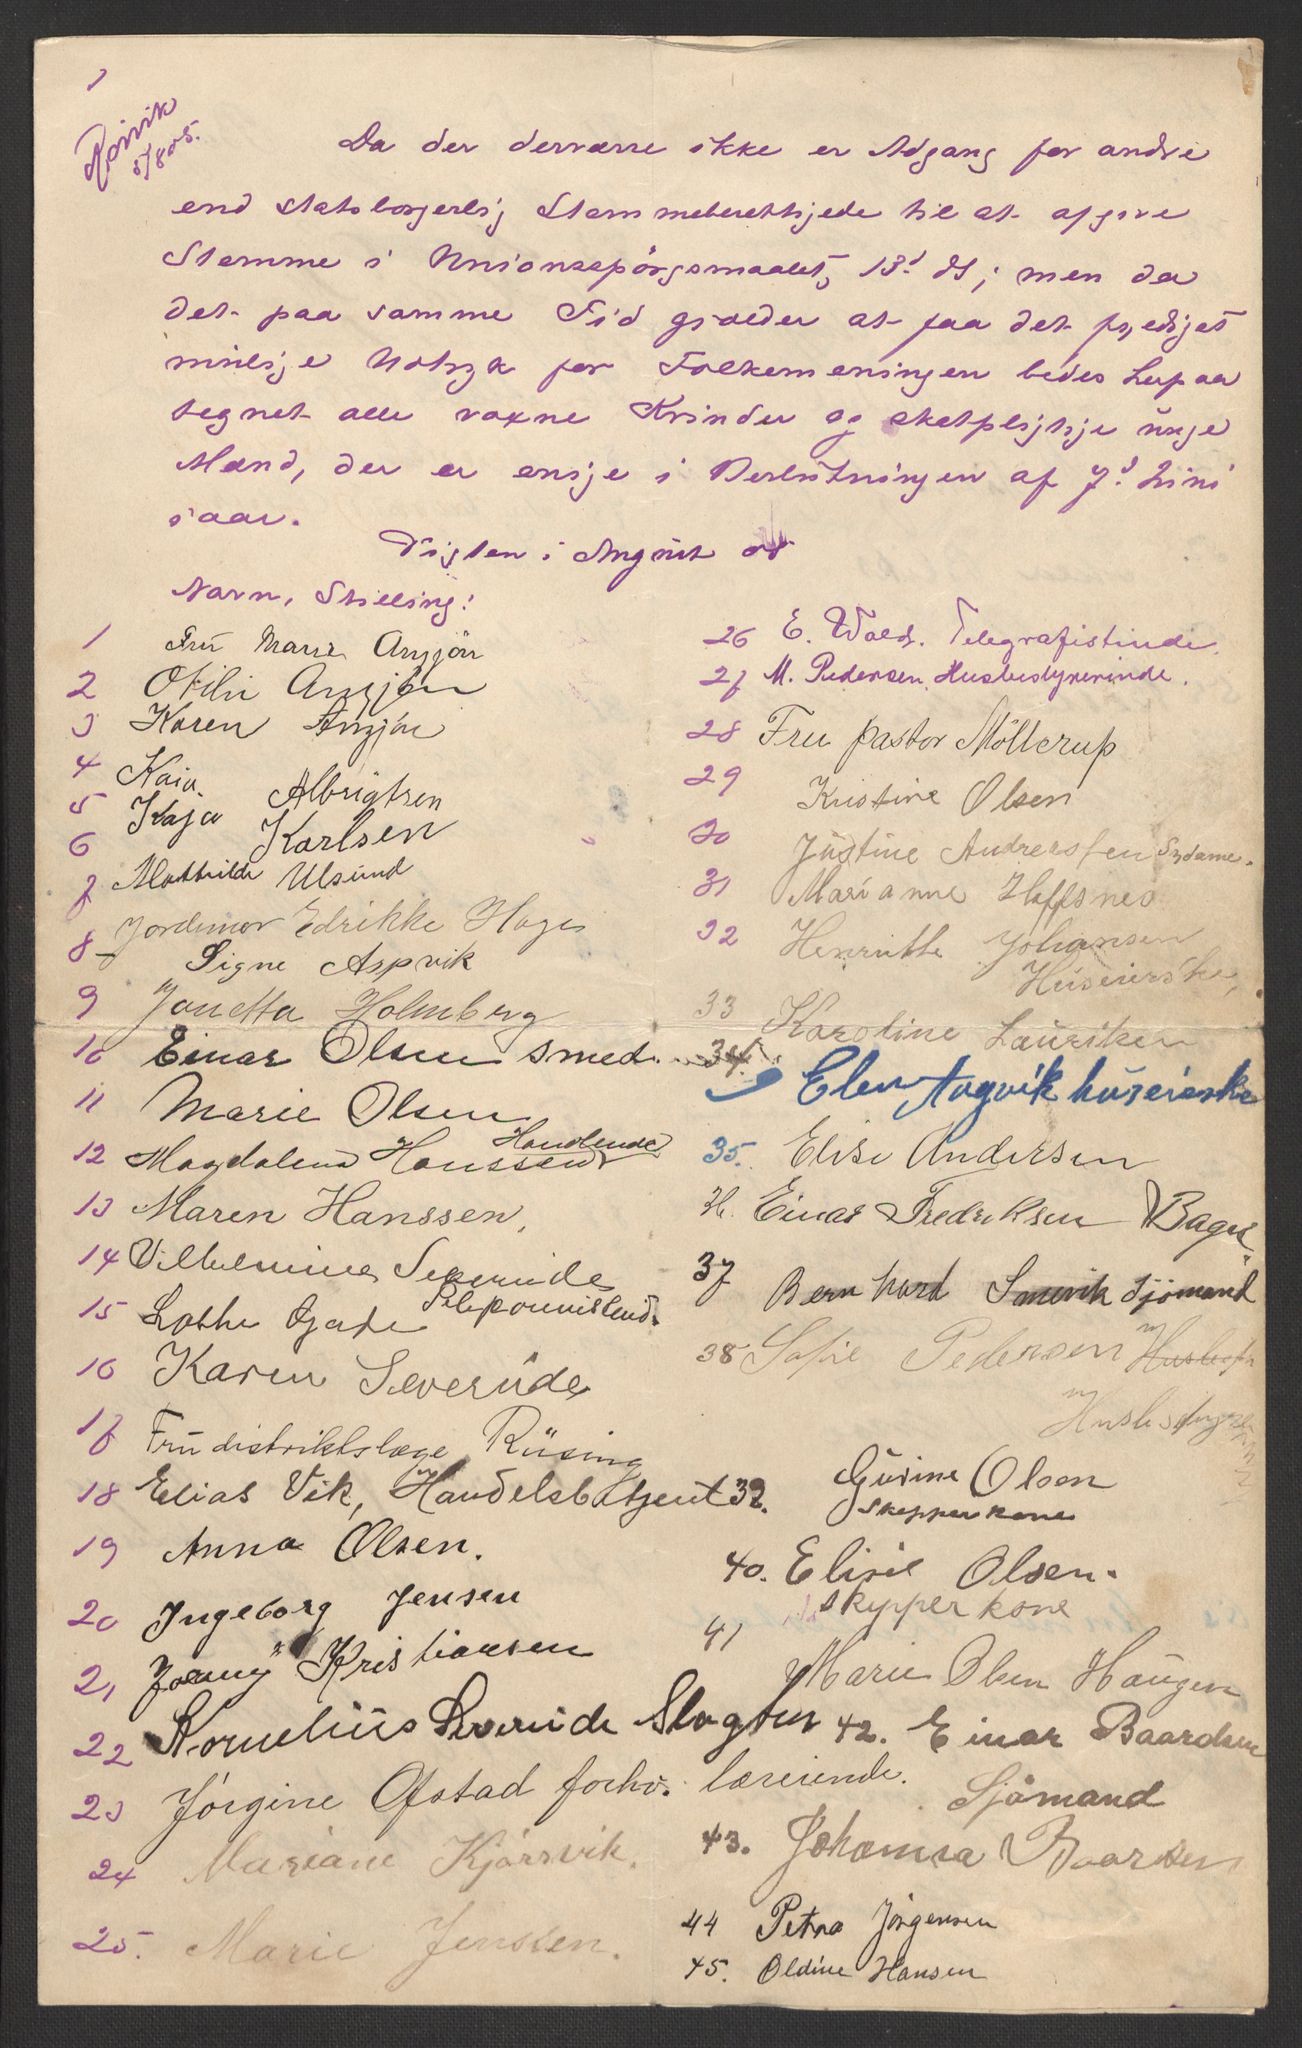 1
Rørvik
5/8 05.
Da der derværre ikke er Adgang for andre
end statsborgerlig Stemmeberettigede til at afgive
Stemme i Unionsspörgsmaalet, 13d ds, men da
det paa samme Tid gjælder at faa det fyldigst
mulige Udtryk for Folkemeningen bedes herpaa
tegnet alle voxne Kvinder og skatpligtige unge
Mænd, der er enige i Beslutningen af 7d Juni
i aar.
Vigten i August 05
Navn, Stilling:
1 Fru Marie Anzjön
2 Otilie Anzjön
3 Karen Anzjön
4 Kaia Albrigtsen
5 Kaja Karlsen
6 Mathilde Ulsund
7 Jordemor Edrikke Hage
8 Signe Aspvik
9 Janetta Holmberg
10 Einar Olsen smed.
11 Marie Olsen
12 Magdalena Hanssen Handlende
13 Maren Hanssen,
14 Vilhelmine Severüde
15 Lothe Telefonistind.
16 Karen Severüde
17 Frü distriktslæge Rüsing
18 Elias Vik, Handelsbetjent
19 Anna Olsen.
20 Ingeborg Jensen
21 Jenny Kristiansen
22 Kornelius Severüde Slagter
23 Jörgine Ofstad forhv. lærerinde.
24 Mariane Kjörsvik.
25. Marie Jenssen.
26 E. Wold. Telegrafistinde.
27 M. Pedersen Husbestyrerinde.
28 Fru pastor Möllerup
29 Kristine Olsen
30 Jüstine Anderssen Sydame.
31 Marianne Hoffsnes
32 Henriette Johansen
Huseierske,
33 Karoline Lauritsen
34. Elen Aagvik huseierske
35. Elise Andersen
36. Einar Fredriksen Bager
37 Bernhard Smevik Sjömand
38 Sofie Pedersen
Husbestyrerinde
39. Gurine Olsen
Skipperkone
40. Elisie Olsen.
Skypperkone
41 Marie Olsen Haugen
42. Einar Baardsen
Sjömand
43. Johanna Baardsen
44 Petra Jörgensen
45. Oldine Hansen